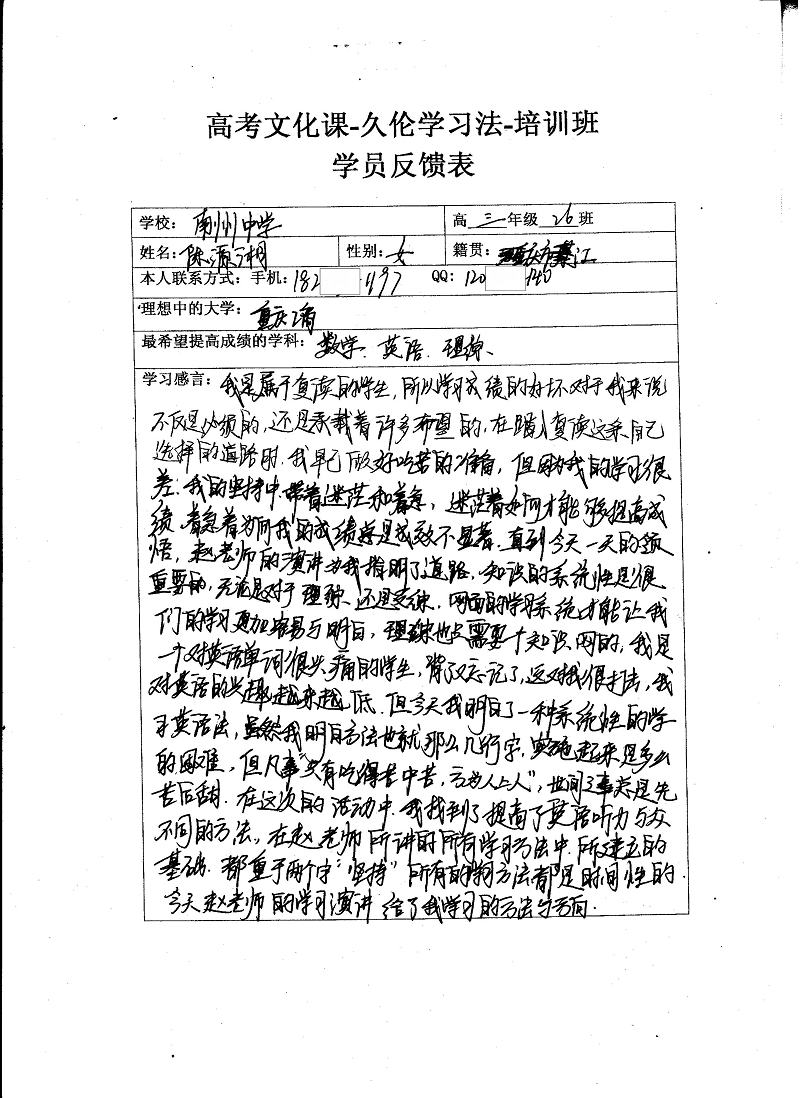 高考文化课-久伦学习法-培训班
学员反馈表
学校：南州中学 高 三 年级 26 班
姓名：陈 湘 性别：女 籍贯：重庆市綦江
本人联系方式：手机：182 497 QQ：120 140
理想中的大学：重庆工商
最希望提高成绩的学科：数学、英语、理综、
学习感言：我是属于复读的学生，所以学习成绩的好坏对于我来说
不仅是必须的，还是承载着许多希望的，在踏入复读这条自己
选择的道路时，我早已做好吃苦的准备，但因为我的学习很
差，我的坚持中带着迷茫和着急，迷茫着如何才能够提高成
绩，着急着为何我的成绩总是成效不显著，直到今天一天的领
悟，赵老师的演讲为我指明了道路，知识的系统性是很
重要的，无论是对于理综、还是文综，网面的学习系统才能让我
们的学习更加容易与明白，理综也是需要个知识网的，我是
一个对英语单词很头痛的学生，背了又忘记了，这对我很打击，我
对英语的兴趣越来越低，但今天我明白了一种系统性的学
习英语法，虽然我明白方法也就那么几行字，实施起来是多么
的困难，但凡事“只有吃得苦中苦，方为人上人”，世间事总是先
苦后甜．在这次的活动中，我找到了提高了英语听力与众
不同的方法，在赵老师所讲的所有学习方法中，所建立的
基础．都重于两个字“坚持”所有的学习方法都是时间性的．
今天赵老师的学习演讲 给了我学习的方法与方向．